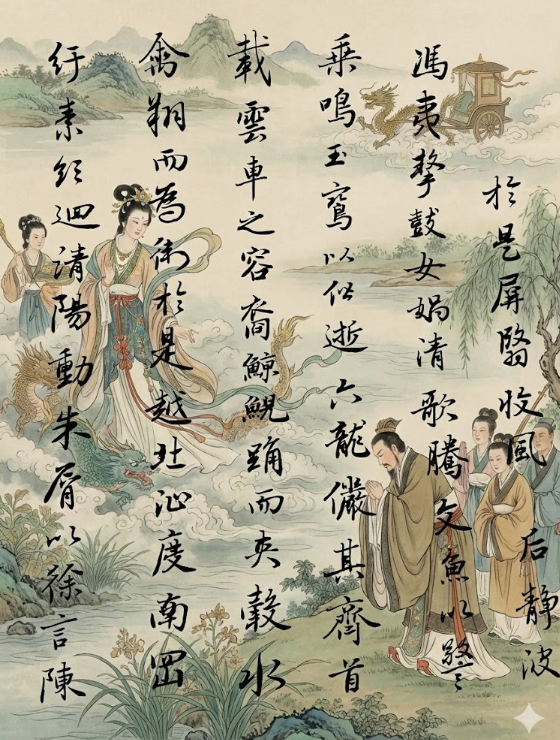 於是屏翳收風后靜波
馮夷擊鼓女媧清歌騰文魚以警
乘鳴玉鸞以偕逝六龍儼其齊首
載雲車之容裔鯨鯢踊而夾轂水
禽翔而為衛於是越北沚度南岡
紆素領迴清陽動朱脣以徐言陳